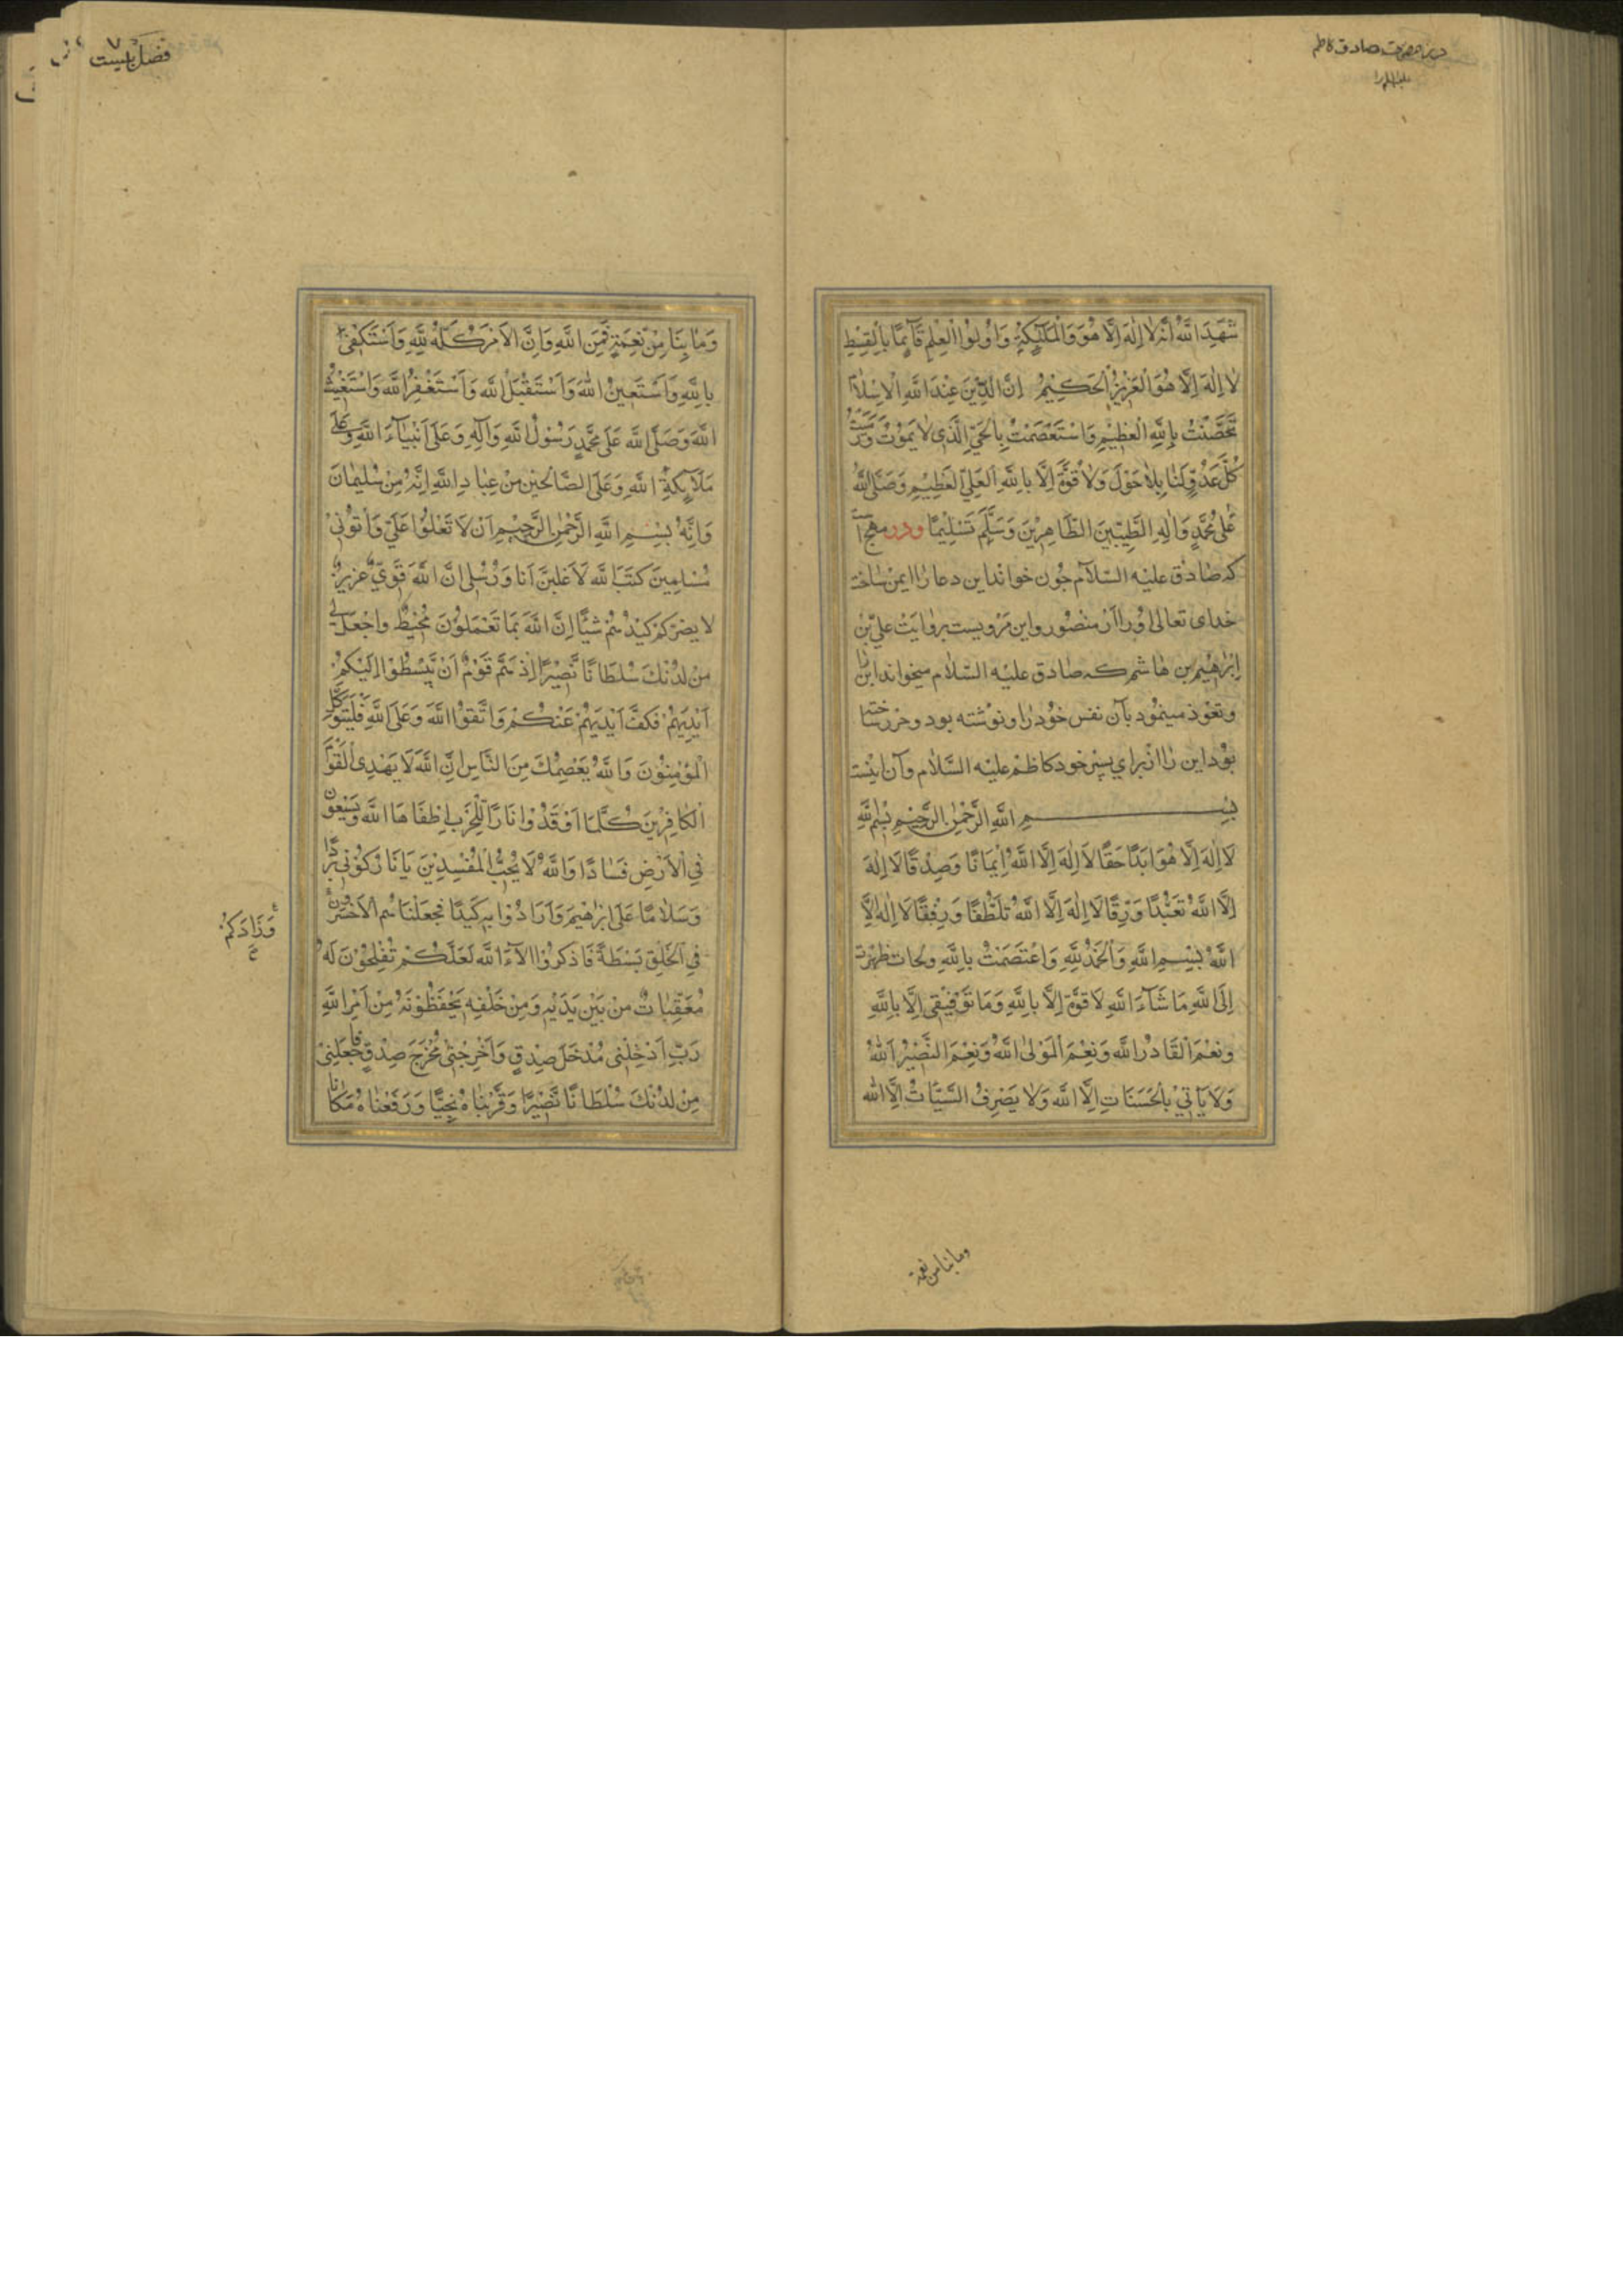 شَهِدَ اللَّهُ أَنَّهُ لَا إِلَهَ إِلَّا هُوَ وَالْمَلَئِكَةُ وَأُولُوا الْعِلْمِ قَآئِمًا بِالْقِسْطِ
لَا إِلَهَ إِلَّا هُوَ الْعَزِيزُ الْحَكِيمُ إِنَّ الدِّينَ عِنْدَ اللَّهِ الْإِسْلَامُ
تَحَصَّنْتُ بِاللَّهِ الْعَظِيمِ وَاسْتَعْصَمْتُ بِالْحَيِّ الَّذِي لَا يَمُوتُ وَرَمَيْتُ
كُلَّ عَدُوٍّ لَنَا بِلَا حَوْلَ وَلَا قُوَّةَ إِلَّا بِاللَّهِ الْعَلِيِّ الْعَظِيمِ وَصَلَّى اللَّهُ
عَلَى مُحَمَّدٍ وَالِهِ الطَّيِّبِينَ الطَّاهِرِينَ وَسَلَّمَ تَسْلِيمًا ودر مهج است
که صادق علیه السلام چون خواند این دعا را ایمن ساخت
خدای تعالی او را از منصور و این مرویست بروایت علی بن
ابراهیم بن هاشم که صادق علیه السلام میخواند این را
و تعوذ مینمود بآن نفس خود را و نوشته بود و حرز ساخته
بود این را از برای پسر خود کاظم علیه السلام و آن اینست
بسم الله الرحمن الرحیم بسم الله
لَا إِلَهَ إِلَّا هُوَ أَبَدًا حَقًّا لَا إِلَهَ إِلَّا اللَّهُ إِيمَانًا وَصِدْقًا لَا إِلَهَ
إِلَّا اللَّهُ تَعَبُّدًا وَرِقًّا لَا إِلَهَ إِلَّا اللَّهُ تَلَطُّفًا وَرِفْقًا لَا إِلَهَ إِلَّا
اللَّهُ بِسْمِ اللَّهِ وَالْحَمْدُ لِلَّهِ وَاعْتَصَمْتُ بِاللَّهِ والجات ظهری
إِلَى اللَّهِ مَا شَآءَ اللَّهُ لَا قُوَّةَ إِلَّا بِاللَّهِ وَمَا تَوْفِيقِي إِلَّا بِاللَّهِ
وَنِعْمَ الْقَادِرُ اللَّهُ وَنِعْمَ الْمَوْلَى اللَّهُ وَنِعْمَ النَّصِيرُ اللَّهُ
وَلَا يَأْتِي بِالْحَسَنَاتِ إِلَّا اللَّهُ وَلَا يَصْرِفُ السَّيِّئَاتِ إِلَّا اللَّهُ
وما بنا من نعمة
وَمَا بِنَا مِنْ نِعْمَةٍ فَمِنَ اللَّهِ وَإِنَّ الْأَمْرَ كُلَّهُ لِلَّهِ وَأَسْتَكْفِي
بِاللَّهِ وَأَسْتَعِينُ اللَّهَ وَأَسْتَقْبِلُ اللَّهَ وَأَسْتَغْفِرُ اللَّهَ وَأَسْتَغِيثُ
اللَّهَ وَصَلَّى اللَّهُ عَلَى مُحَمَّدٍ رَسُولِ اللَّهِ وَآلِهِ وَعَلَى أَنْبِيَآءِ اللَّهِ وَعَلَى
مَلَآئِكَةِ اللَّهِ وَعَلَى الصَّالِحِينَ مِنْ عِبَادِ اللَّهِ إِنَّهُ مِنْ سُلَيْمَانَ
وَإِنَّهُ بِسْمِ اللَّهِ الرَّحْمَنِ الرَّحِيمِ أَنْ لَا تَعْلُوا عَلَيَّ وَأْتُونِي
مُسْلِمِينَ كَتَبَ اللَّهُ لَأَغْلِبَنَّ أَنَا وَرُسُلِي إِنَّ اللَّهَ قَوِيٌّ عَزِيزٌ
لَا يَضُرُّكُمْ كَيْدُهُمْ شَيْئًا إِنَّ اللَّهَ بِمَا تَعْمَلُونَ مُحِيطٌ وَاجْعَلْ لِي
مِنْ لَدُنْكَ سُلْطَانًا نَصِيرًا إِذْ هَمَّ قَوْمٌ أَنْ يَبْسُطُوا إِلَيْكُمْ
أَيْدِيَهُمْ فَكَفَّ أَيْدِيَهُمْ عَنْكُمْ وَاتَّقُوا اللَّهَ وَعَلَى اللَّهِ فَلْيَتَوَكَّلِ
الْمُؤْمِنُونَ وَاللَّهُ يَعْصِمُكَ مِنَ النَّاسِ إِنَّ اللَّهَ لَا يَهْدِي الْقَوْمَ
الْكَافِرِينَ كُلَّمَا أَوْقَدُوا نَارًا لِلْحَرْبِ أَطْفَأَهَا اللَّهُ وَيَسْعَوْنَ
فِي الْأَرْضِ فَسَادًا وَاللَّهُ لَا يُحِبُّ الْمُفْسِدِينَ يَا نَارُ كُونِي بَرْدًا
وَسَلَامًا عَلَى إِبْرَاهِيمَ وَأَرَادُوا بِهِ كَيْدًا فَجَعَلْنَاهُمُ الْأَخْسَرِينَ
وَزَادَكُمْ
فِي الْخَلْقِ بَسْطَةً فَاذْكُرُوا آلَآءَ اللَّهِ لَعَلَّكُمْ تُفْلِحُونَ لَهُ
مُعَقِّبَاتٌ مِنْ بَيْنِ يَدَيْهِ وَمِنْ خَلْفِهِ يَحْفَظُونَهُ مِنْ أَمْرِ اللَّهِ
رَبِّ أَدْخِلْنِي مُدْخَلَ صِدْقٍ وَأَخْرِجْنِي مُخْرَجَ صِدْقٍ فاجعلنی
مِنْ لَدُنْكَ سُلْطَانًا نَصِيرًا وَقَرَّبْنَاهُ نَجِيًّا وَرَفَعْنَاهُ مَكَانًا